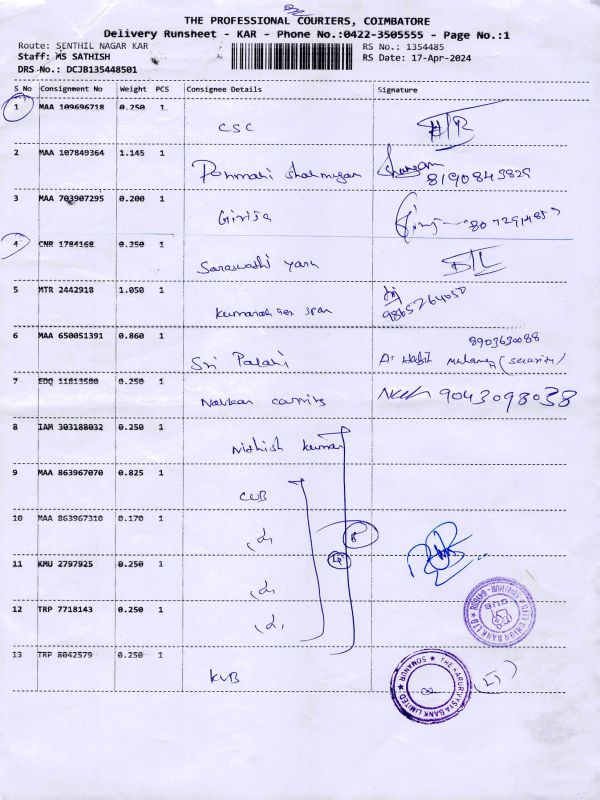 THE PROFESSIONAL COURIERS, COIMBATORE
Delivery Runsheet - KAR - Phone No.:0422-3505555 - Page No.:1
Route: SENTHIL NAGAR KAR
RS No.: 1354485
Staff: MS SATHISH
RS Date: 17-Apr-2024
DRS-No.: DCJB135448501
S No Consignment No Weight PCS Consignee Details Signature
1 MAA 109696718 0.250 1
CSC
2 MAA 107849364 1.145 1
3 MAA 703907295 0.200 1
Girija
4 CNR 1784168 0.250 1
5 MTR 2442918 1.050 1
6 MAA 650051391 0.860 1
8903630088
Sri Palani
(security)
7 EDQ 11813580 0.250 1
9043098038
8 IAM 303188032 0.250 1
Nithish kumar
9 MAA 863967070 0.825 1
CUB
10 MAA 863967310 0.170 1
11 KMU 2797925 0.250 1
12 TRP 7718143 0.250 1
CITY UNION BANK LTD
13 TRP 8042579 0.250 1
KVB
THE KARUR VYSYA BANK LIMITED
SOMANUR